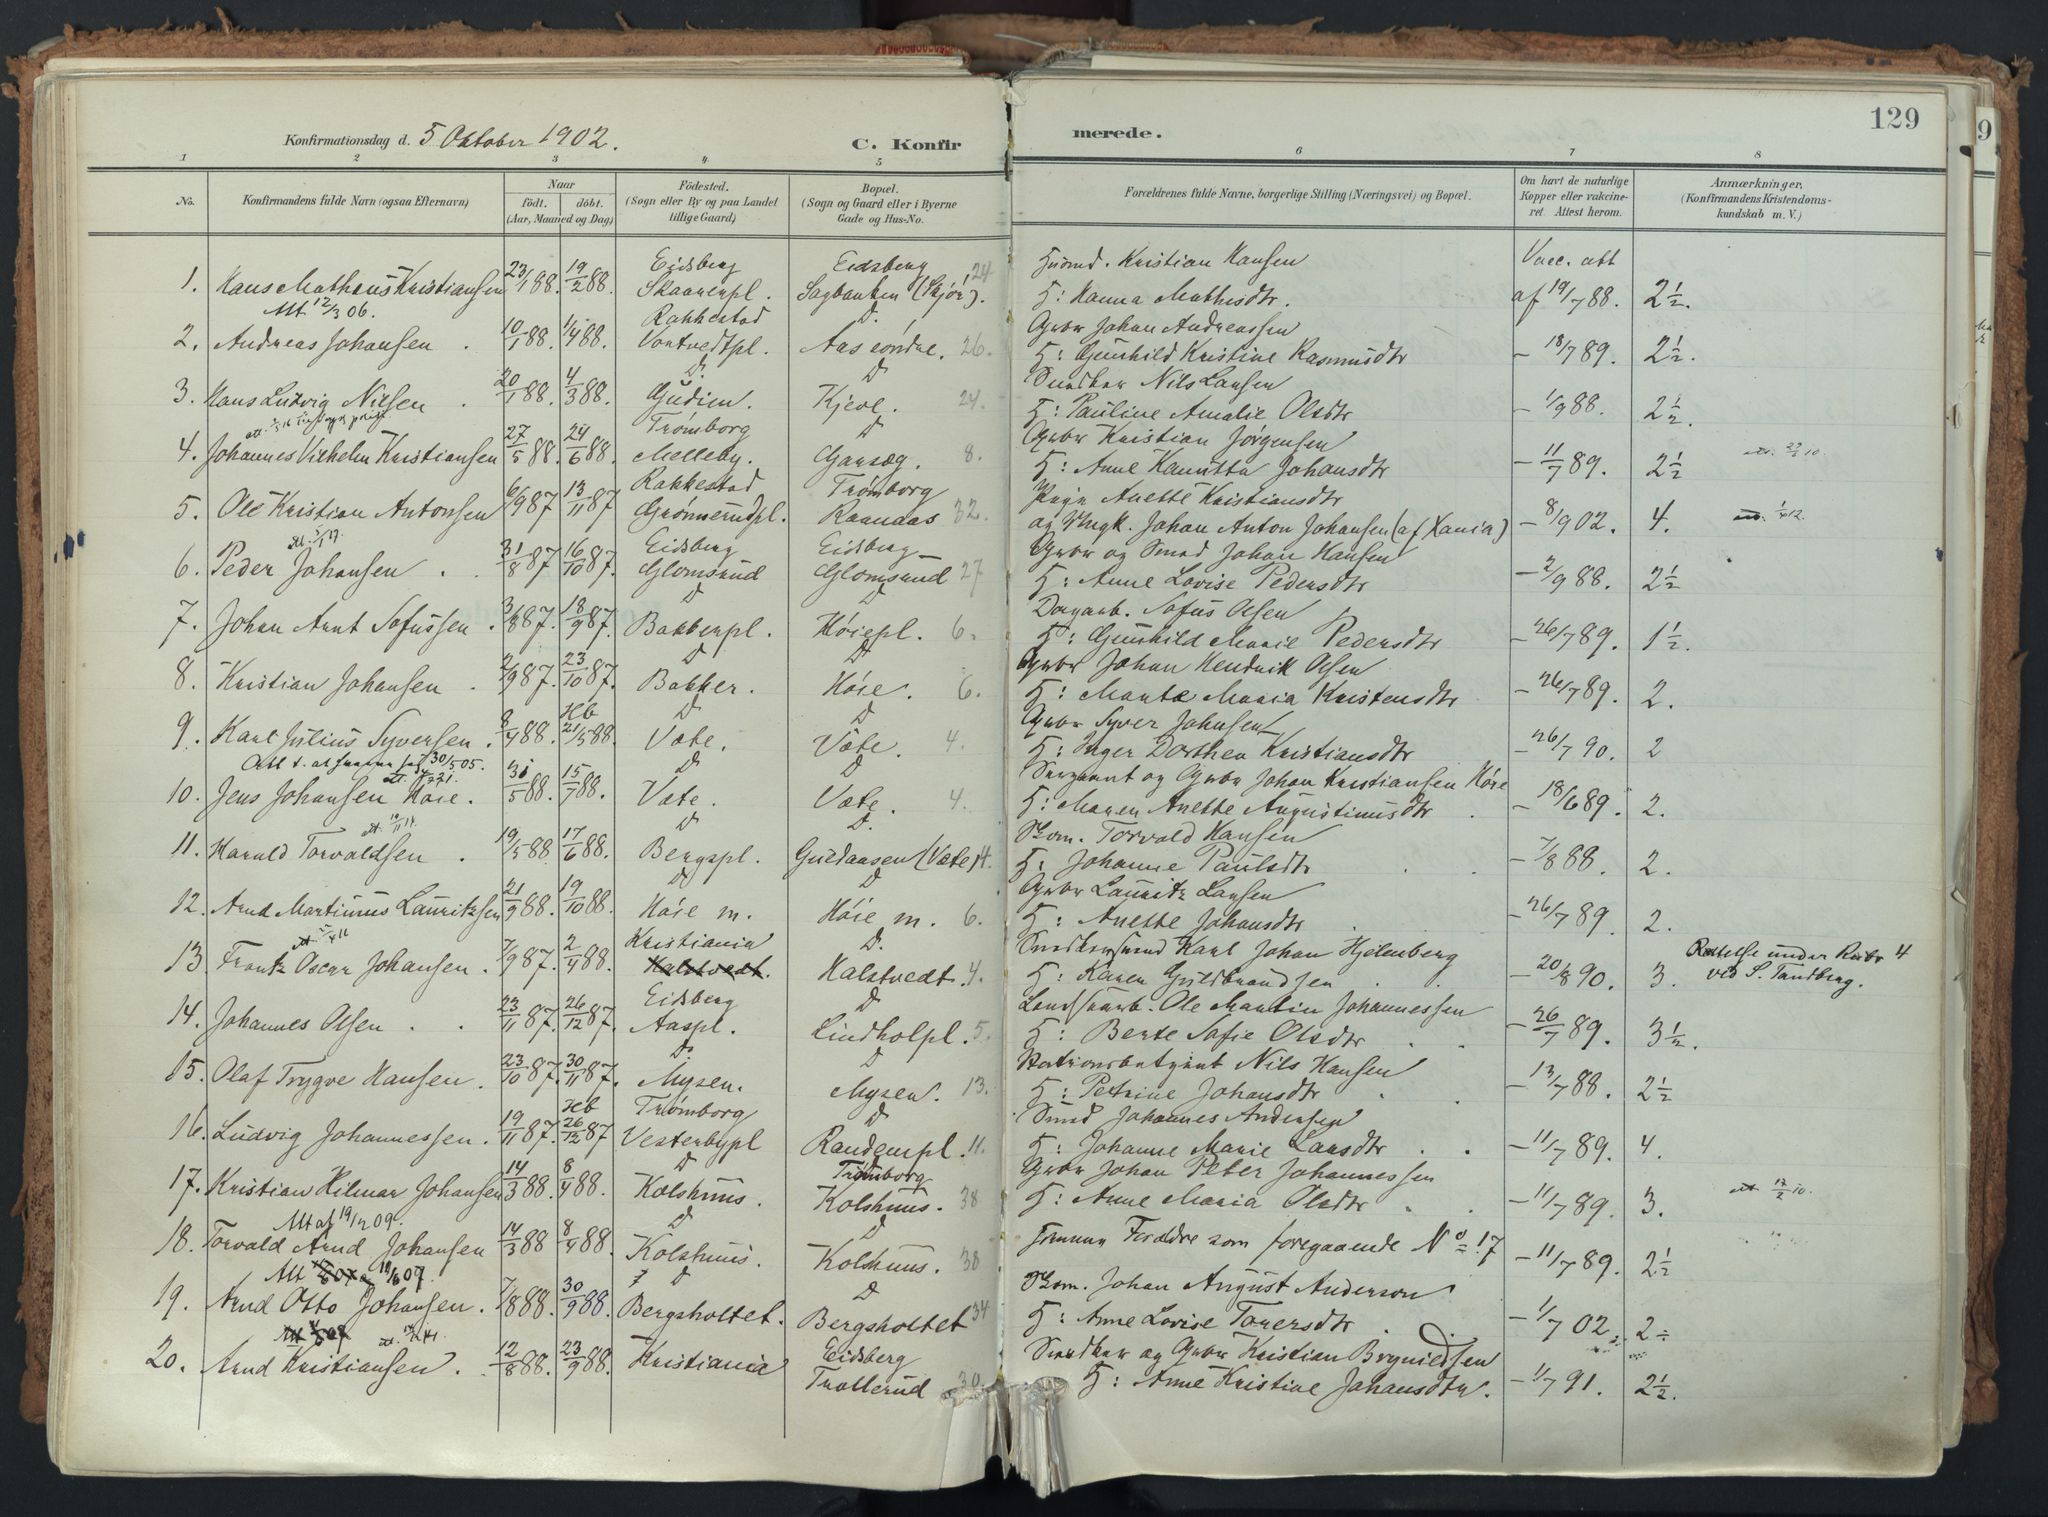 129
Konfirmationsdag d. 5 Oktober 1902.
C. Konfirmerede.
1 2 3 4 5 6 7 8
No.
Konfirmandens fulde Navn (ogsaa Efternavn)
Naar
født. døbt.
(Aar, Maaned og Dag)
Fødested.
(Sogn eller By og paa Landet
tillige Gaard)
Bopæl.
(Sogn og Gaard eller i Byerne
Gade og Hus-No.
Forældrenes fulde Navne, borgerlige Stilling (Næringsvei) og Bopæl.
Om havt de naturlige
Kopper eller vakcine-
ret. Attest herom.
Anmærkninger.
(Konfirmandens Kristendoms-
kundskab m. V.)
Eidsberg Eidsberg 24 Kristian Hansen Vacc. att
1. Hans Mathæus Kristiansen 23/1 88. 19/2 88. Skaarerpl. Sagbanken (Skjør). H: Hanna Mathisdtr. af 19/7 88. 2½.
Att. 12/3 06. Rakkestad D. Grbr Johan Andreassen
2. Andreas Johansen 10/1 88. 1/4 88. Vortvedtpl. Aas søndre. 26. H: Gunhild Kristine Rasmusdtr – 18/7 89. 2½.
D. D Snedker Nils Larsen
3. Hans Ludvig Nilsen 20/1 88. 4/3 88. Gudim. Kjeve. 24. H: Pauline Amalie Olsdtr – 1/9 88. 2½.
Trømborg D Grbr Kristian Jørgensen
4. Johannes Vilhelm Kristiansen 27/5 88. 24/6 88. Melleby. Garsæg. 8. H: Anne Hanitta Johansdtr – 11/7 89. 2½
Rakkestad Trømborg Pige Anette Kristiansdtr
5. Ole Kristian Antonsen 6/9 87 13/11 87 Grønnerudpl. Raanaas 32. og Ungk. Johan Anton Johansen (af Xania) – 8/9 02. 4.
Eidsberg Eidsberg Grbr og Smed Johan Hansen
6. Peder Johansen 31/8 87 16/10 87. Glomsrud Glomsrud 27 H: Anne Lovise Pedersdtr – 2/9 88. 2½
D D Dagarb. Sofus Olsen
7. Johan Arnt Sofussen 3/8 87. 18/9 87. Bakkerpl. Høiepl. 6. H: Gunhild Marie Pedersdtr – 26/7 89. 1½.
D D Grbr Johan Hendrik Olsen
8. Kristian Johansen 2/9 87. 23/10 87. Bakker. Høie. 6. H: Marte Maria Kristensdtr – 26/7 89. 2.
Hb D D Grbr Syver Johnsen
9. Karl Julius Syversen 8/4 88. 21/5 88. Væte. Væte. 4. H: Inger Dorthea Kristiansdtr – 26/7 90. 2
30/5 05. D D Sergeant og Grbr Johan Kristiansen Høie
10. Jens Johansen Høie. 31/5 88. 15/7 88. Væte. Væte. 4. H: Maren Anette Augustinusdtr – 18/6 89. 2.
D D. Skom. Torvald Hansen
11. Harald Torvaldsen 19/5 88 17/6 88. Bergspl. Guldaasen (Væte) 4. H: Johanne Paulsdtr – 7/8 88. 2.
D D Grbr Lauritz Larsen
12. Arnd Martinius Lauritzsen 21/9 88. 19/10 88. Høie m. Høie m. 6. H: Anette Johansdtr – 26/7 89. 2.
Kristiania D. Snedkersvend Karl Johan Hjelenberg Rettelse under Rubr 4
13. Frantz Oscar Johansen. 7/9 87. 2/4 88. Halstvedt. Halstvedt. 4. H: Karen Guldbrandsen – 20/8 90. 3. ved S. Tandberg.
Eidsberg D Ole Martin Johannessen
14. Johannes Olsen 23/11 87. 26/12 87. Aaspl. Lindholpl. 5. H: Berte Sofie Olsdtr – 26/7 89. 3½
D. D Stationsbetjent Nils Hansen
15. Olaf Trygve Hansen 23/10 87. 30/11 87. Mysen. Mysen. 13. H: Petrine Johansdtr – 13/7 88. 2½
Hb Trømborg D Smed Johannes Andersen
16. Ludvig Johannessen. 19/11 87. 26/12 87 Vesterbypl Randempl. 11. H: Johanne Marie Larsdtr – 11/7 89. 4.
D Trømborg Grbr Johan Peter Johannessen
17. Kristian Hilmar Johansen 14/3 88. 8/4 88. Kolshuus. Kolshuus. 38 H: Anne Maria Olsdtr – 11/7 89. 3.
Att af 19/12 09. D D
18. Torvald Arnd Johansen 14/3 88 8/4 88. Kolshuus. Kolshuus. 38 Samme Forældre som foregaaende No 17 – 11/7 89. 2½
Att 18/6 07. D D Skom. Johan August Anderson
19. Arnd Otto Johansen. 7/8 88. 30/9 88. Bergsholtet. Bergsholtet 34 H: Anne Lovise Torersdtr – 1/7 02. 2÷
Eidsberg Snedker og Grbr Kristian Brynildsen
20. Arnd Kristiansen. 12/8 88. 23/9 88. Kristiania Trollerud 30. H: Anne Kristine Johansdtr. – 1/7 91. 2½.